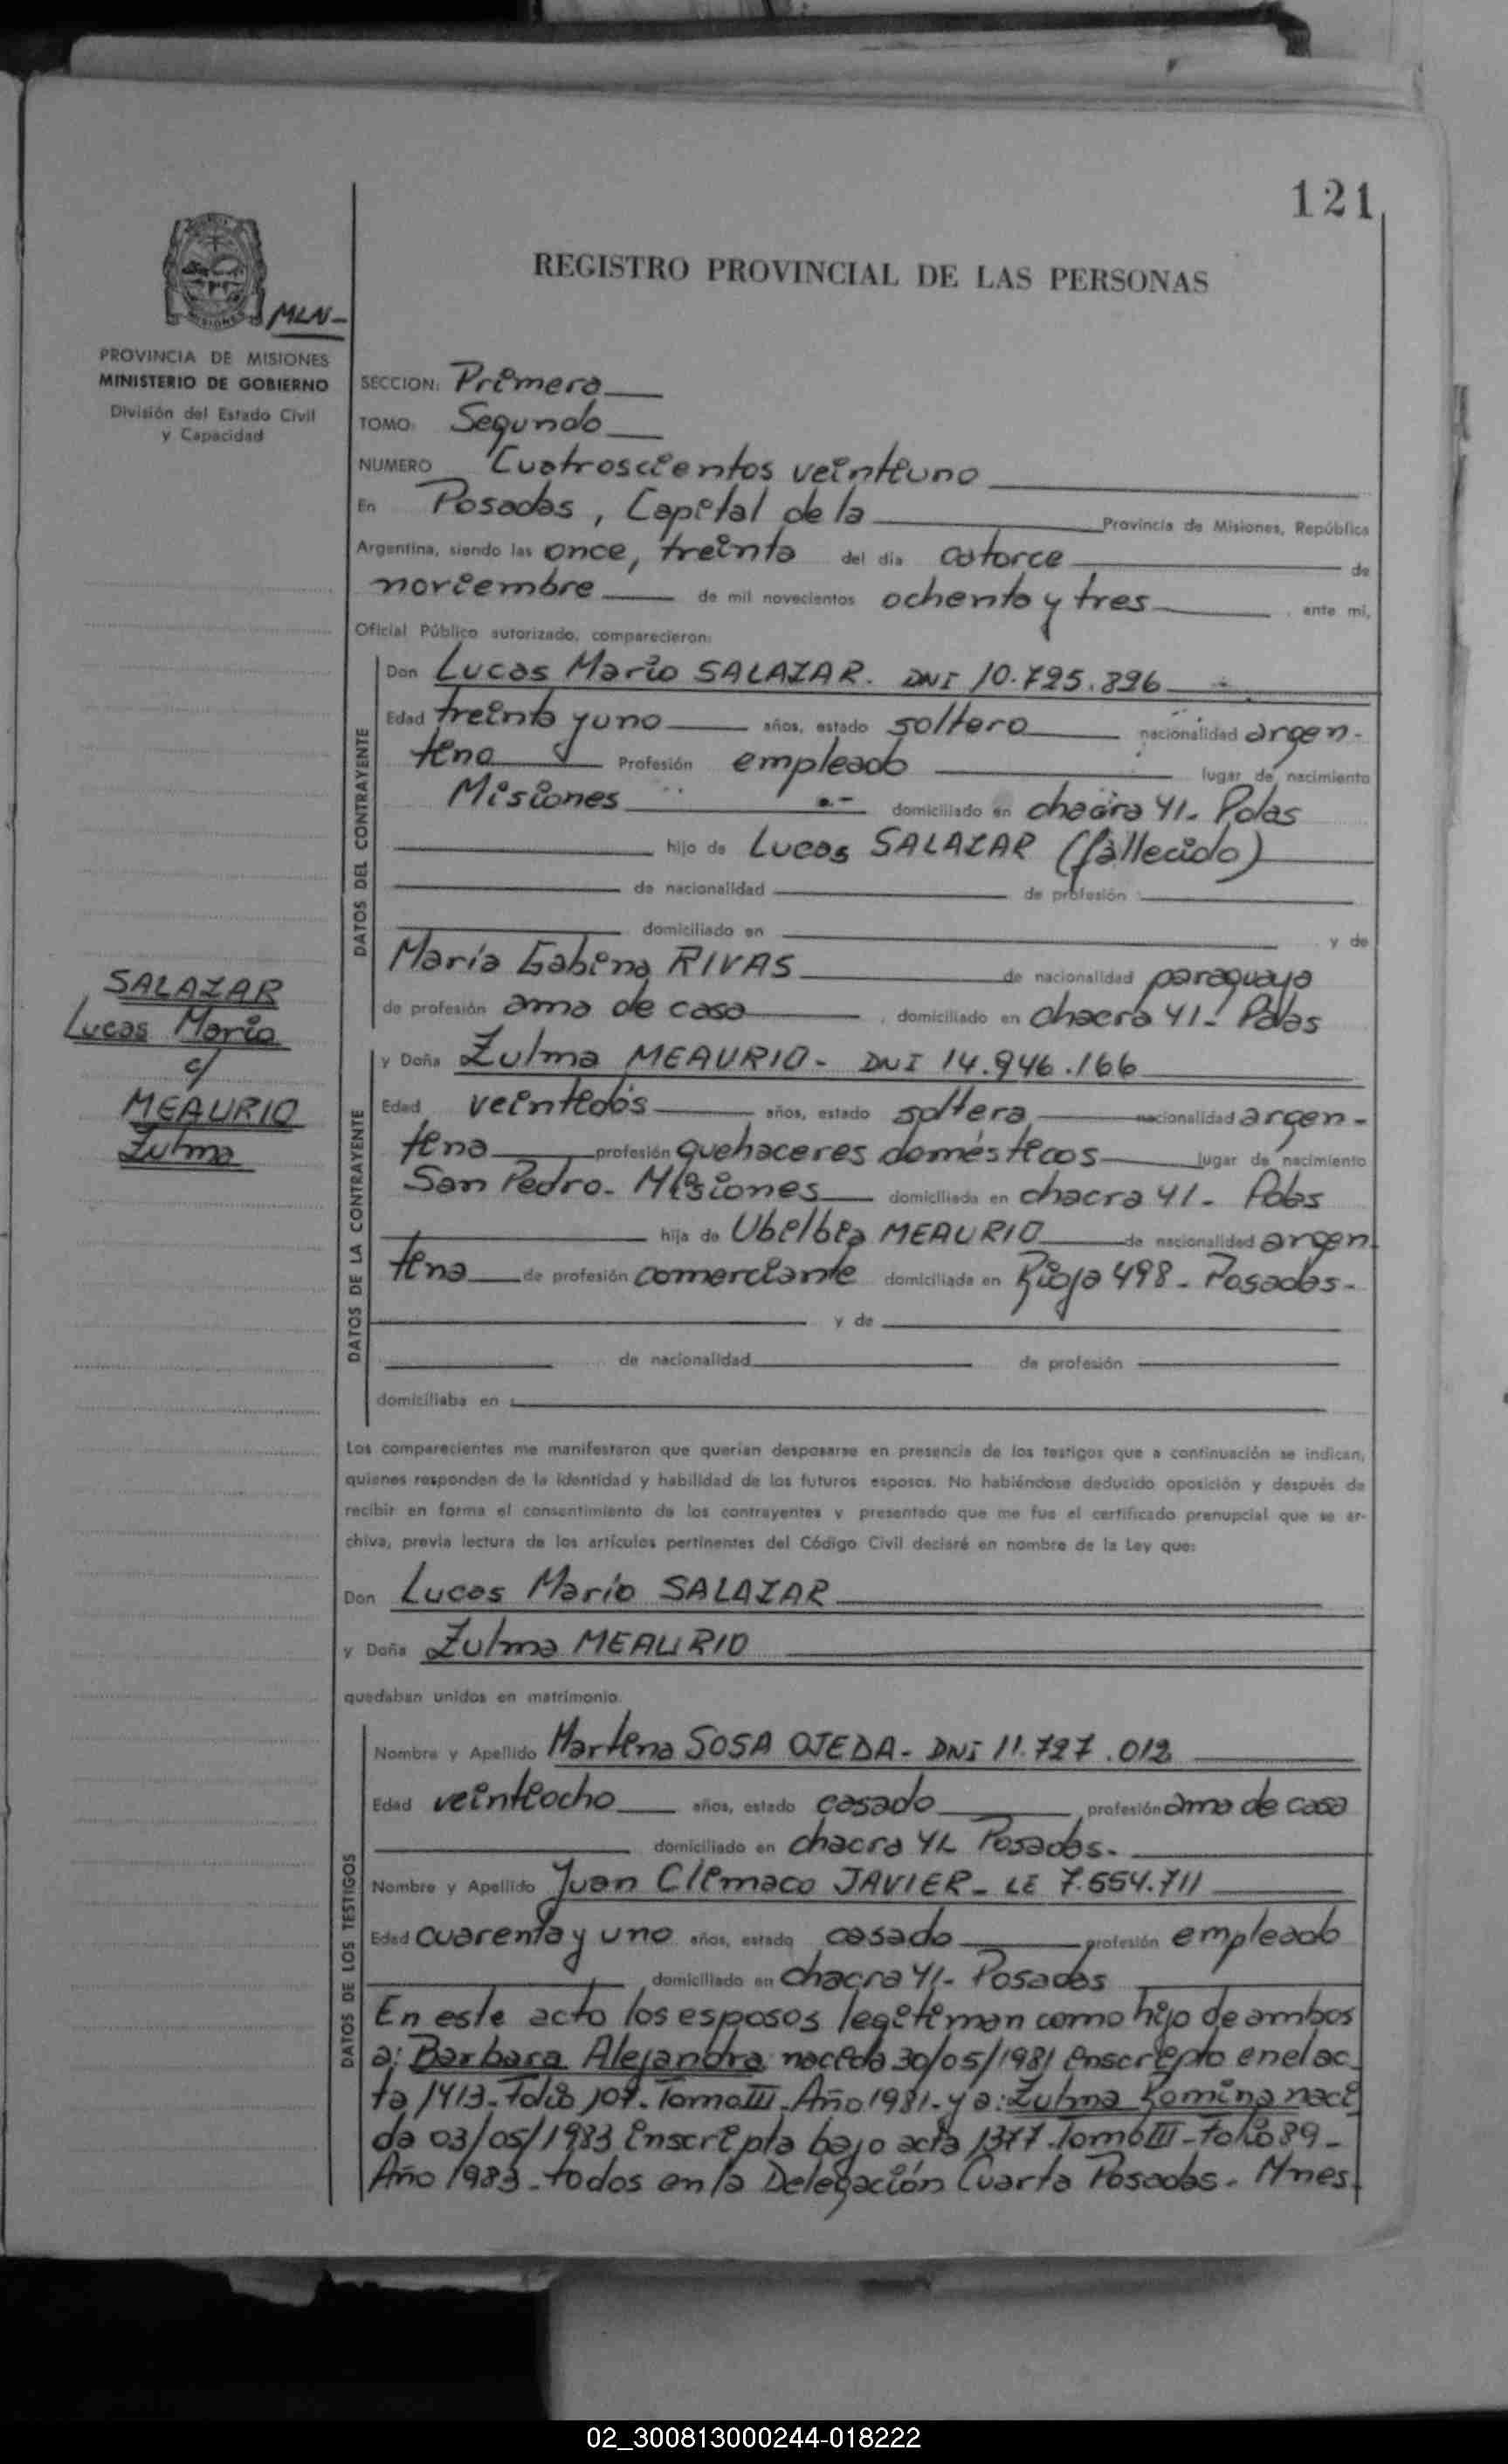 121
REGISTRO PROVINCIAL DE LAS PERSONAS
MISIONES
MLN-
PROVINCIA DE MISIONES
MINISTERIO DE GOBIERNO
División del Estado Civil
y Capacidad
SECCION: Primera
TOMO: Segundo
NUMERO Cuatroscientos veintiuno
En Posadas, Capital de la Provincia de Misiones, República
Argentina, siendo las once, treinta del día catorce de
noviembre de mil novecientos ochenta y tres , ante mí,
Oficial Público autorizado, comparecieron:
DATOS DEL CONTRAYENTE
Don Lucas Mario SALAZAR. DNI 10.725.896
Edad treinta y uno años, estado soltero nacionalidad argen-
tina Profesión empleado lugar de nacimiento
Misiones domiciliado en chacra 41- Pdas
hijo de Lucas SALAZAR (fallecido)
de nacionalidad de profesión
domiciliado en y de
María Gabina RIVAS de nacionalidad paraguaya
de profesión ama de casa , domiciliado en chacra 41- Pdas
SALAZAR
Lucas Mario
c/
MEAURIO
Zulma
DATOS DE LA CONTRAYENTE
y Doña Zulma MEAURIO- DNI 14.946.166
Edad veintidós años, estado soltera nacionalidad argen-
tina profesión quehaceres domésticos lugar de nacimiento
San Pedro- Misiones domiciliada en chacra 41- Pdas
hija de MEAURIO de nacionalidad argen
tina de profesión comerciante domiciliada en Rioja 498- Posadas-
y de
de nacionalidad de profesión
domiciliaba en
Los comparecientes me manifestaron que querían desposarse en presencia de los testigos que a continuación se indican,
quienes responden de la identidad y habilidad de los futuros esposos. No habiéndose deducido oposición y después de
recibir en forma el consentimiento de los contrayentes y presentado que me fue el certificado prenupcial que se ar-
chiva, previa lectura de los artículos pertinentes del Código Civil declaré en nombre de la Ley que:
Don Lucas Mario SALAZAR
y Doña Zulma MEAURIO
quedaban unidos en matrimonio.
DATOS DE LOS TESTIGOS
Nombre y Apellido Martina SOSA OJEDA- DNI 11.727.012
Edad veintiocho años, estado casado profesión ama de casa
domiciliado en chacra 41 Posadas-
Nombre y Apellido Juan Climaco JAVIER- LE 7.554.711
Edad cuarenta y uno años, estado casado profesión empleado
domiciliado en chacra 41- Posadas
En este acto los esposos legitiman como hijo de ambos
a: Barbara Alejandra nacida 30/05/1981 inscripto en el ac
ta 1413- Folio 107- Tomo III- Año 1981- y a: Zulma Romina naci
da 03/05/1983 inscripta bajo acta 1377- Tomo III- folio 89-
Año 1983- todos en la Delegación Cuarta Posadas- Mnes.
02_300813000244-018222